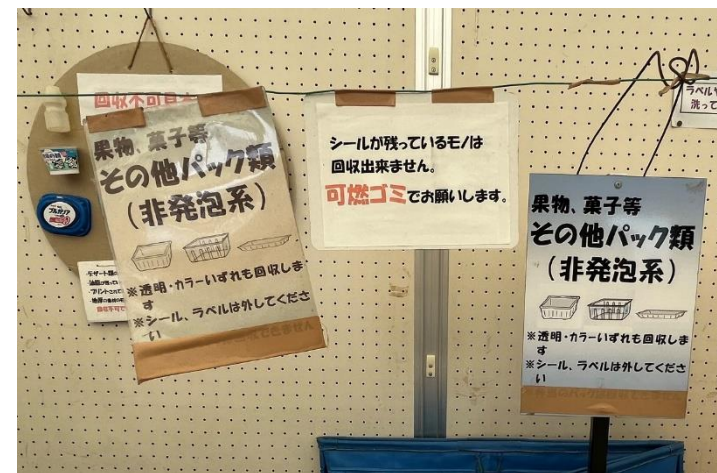 回収不可見本
果物、菓子等
その他パック類
(非発泡系)
※透明・カラーいずれも回収しま
す
※シール、ラベルは外してくださ
い
シールが残っているモノは
回収出来ません。
可燃ゴミでお願いします。
果物、菓子等
その他パック類
(非発泡系)
※透明・カラーいずれも回収しま
す
※シール、ラベルは外してくださ
い
ラベルや
洗って